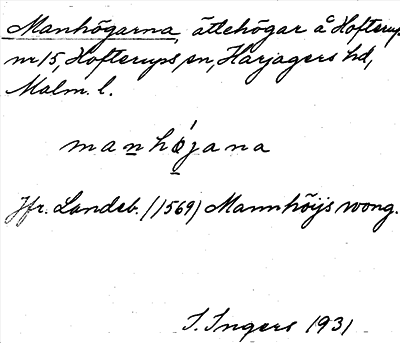 Manhögarna, ättehögar å Hofterup
nr 15, Hofterups sn, Harjagers hd,
Malm. l.
manhǿjana
Jfr. Landeb. (1569) Mannhöijs wong.
I. Ingers 1931